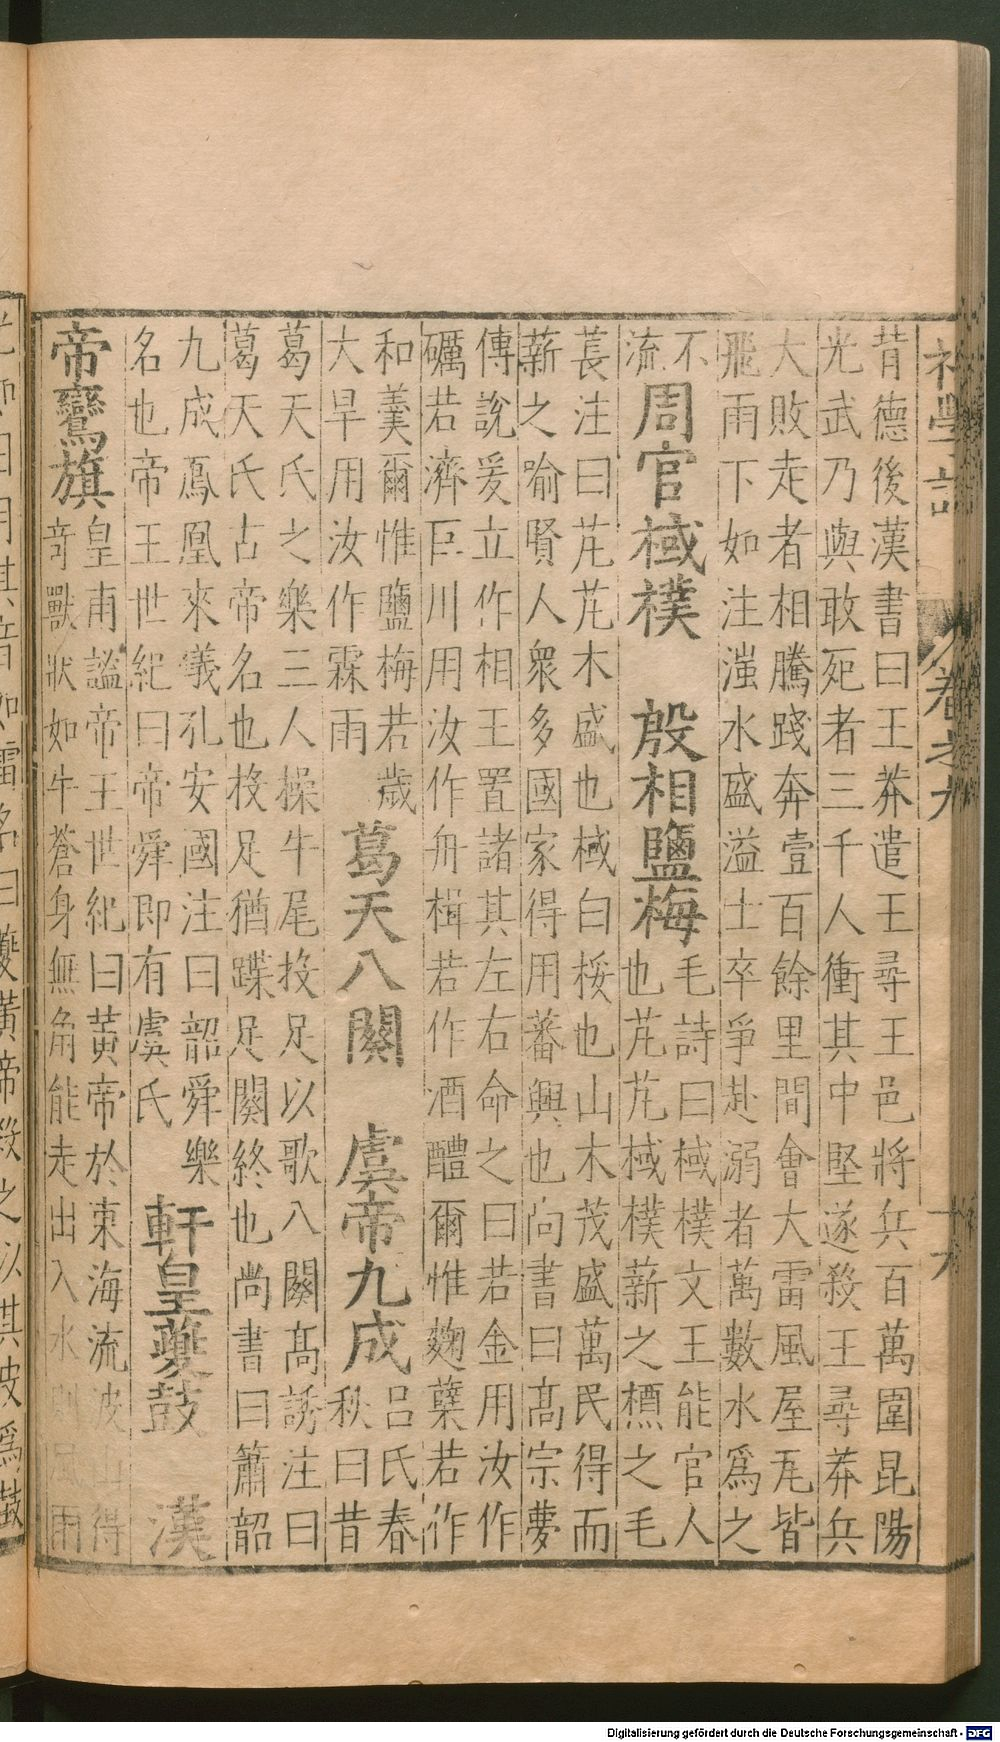 昔德後漢書曰王莽遣王尋王邑將兵百萬圍昆陽
光武乃與敢死者三千人衝其中堅遂殺王尋莽兵
大敗走者相騰踐奔壹百餘里間會大雷風屋瓦皆
飛雨下如注滍水盛溢士卒爭赴溺者萬數水爲之
不
流
周官棫樸 殷相鹽梅
毛詩曰棫樸文王能官人
也芃芃棫樸薪之槱之毛
萇注曰芃芃木盛也棫白桵也山木茂盛萬民得而
薪之喻賢人衆多國家得用蕃興也尚書曰髙宗夢
傳說爰立作相王置諸其左右命之曰若金用汝作
礪若濟巨川用汝作舟楫若作酒醴爾惟麴櫱若作
和羹爾惟鹽梅若歲
大旱用汝作霖雨
葛天八闋 虞帝九成
吕氏春
秋曰昔
葛天氏之樂三人操牛尾投足以歌八闋髙誘注曰
葛天氏古帝名也投足猶蹀足闋終也尚書曰簫韶
九成鳳凰來儀孔安國注曰韶舜樂
名也帝王世紀曰帝舜即有虞氏
軒皇夔鼓 漢
帝鸞旗
皇甫謐帝王世紀曰黃帝於東海流波山得
竒獸狀如牛蒼身無角能走出入水則風雨
初學記 卷之九 十九
光如日月其音如雷名曰夔黃帝殺之以其皮爲鼓
Digitalisierung gefördert durch die Deutsche Forschungsgemeinschaft - DFG